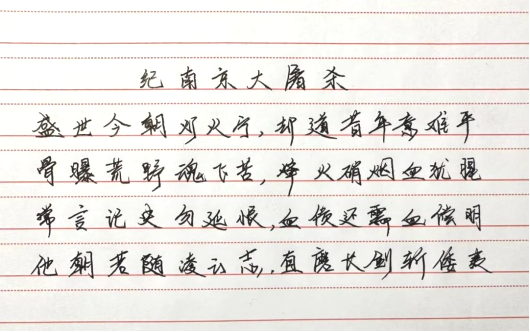 纪南京大屠杀
盛世今朝灯火宁,却道昔年意难平
骨曝荒野魂飞苦,烽火硝烟血犹腥
常言记史勿延恨,血债还需血偿明
他朝若随凌云志,直磨长剑斩倭夷